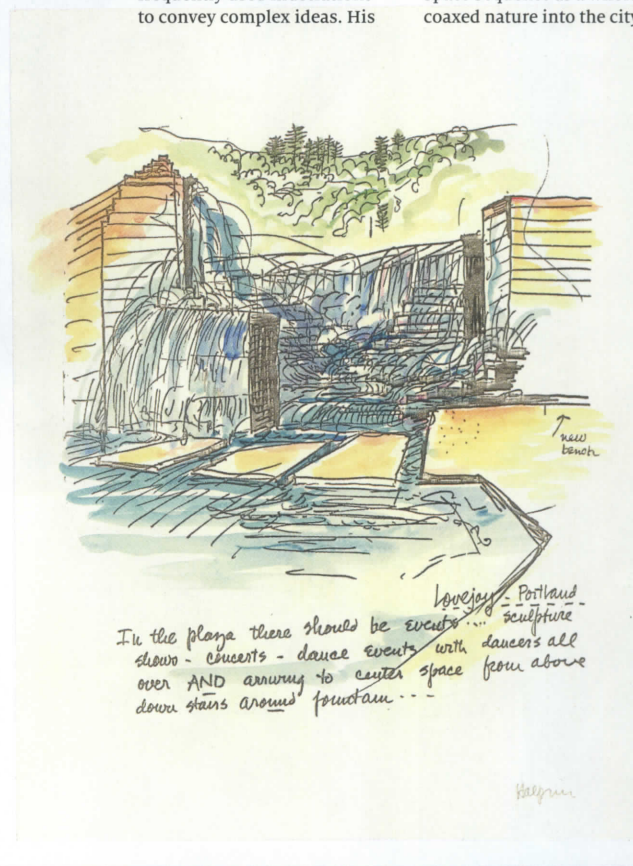 to convey complex ideas. His
coaxed nature into the city
new
bench
Lovejoy - Portland
In the plaza there should be events ... sculpture
shows - concerts - dance events with dancers all
over AND arriving to center space from above
down stairs around fountain ...
Halprin